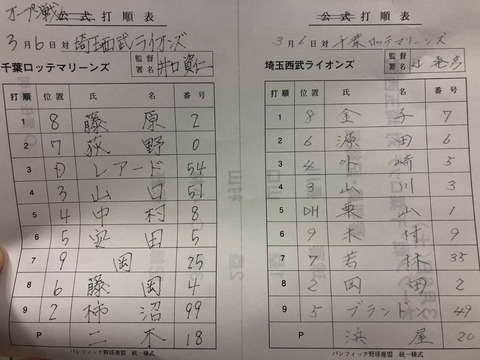 オープン戦
公式打順表
3月6日対 埼玉西武ライオンズ
千葉ロッテマリーンズ 監督署名 井口資仁
打順 位置 氏名 番号
1 8 藤原 2
2 7 荻野 0
3 D レアード 54
4 3 山口 51
5 4 中村 8
6 5 安田 5
7 9 岡 25
8 6 藤岡 4
9 2 柿沼 99
P 二木 18
パシフィック野球連盟 統一様式
公式打順表
3月6日対 千葉ロッテマリーンズ
埼玉西武ライオンズ 監督署名 辻発彦
打順 位置 氏名 番号
1 8 金子 7
2 6 源田 6
3 4 外崎 5
4 3 山川 3
5 DH 栗山 1
6 9 木村 9
7 7 若林 35
8 2 岡田 2
9 5 ブランドン 49
P 浜屋 20
パシフィック野球連盟 統一様式